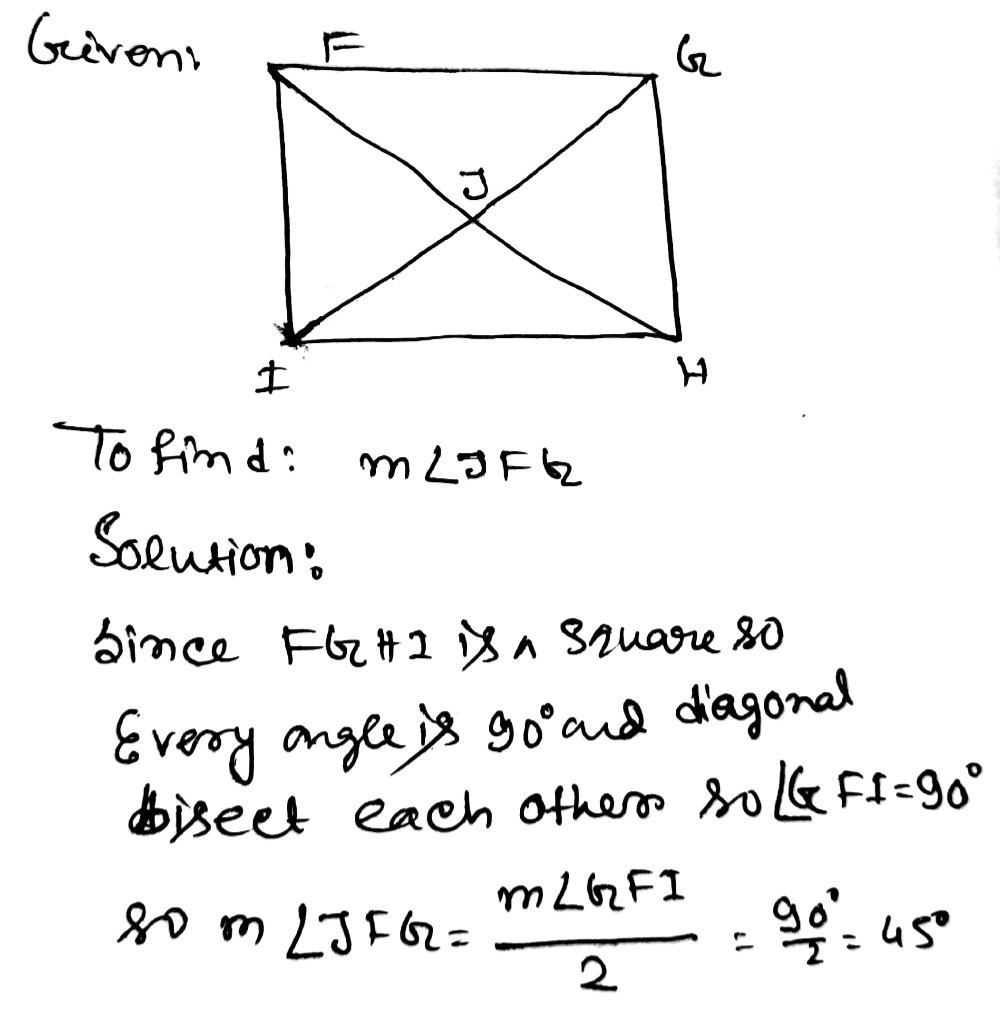 Given:
F
G
J
I
H
To find: m∠JFG
Solution:
Since FGHI is a square so
Every angle is 90° and diagonal
bisect each other so ∠GFI=90°
so m∠JFG = m∠GFI / 2 = 90°/2 = 45°